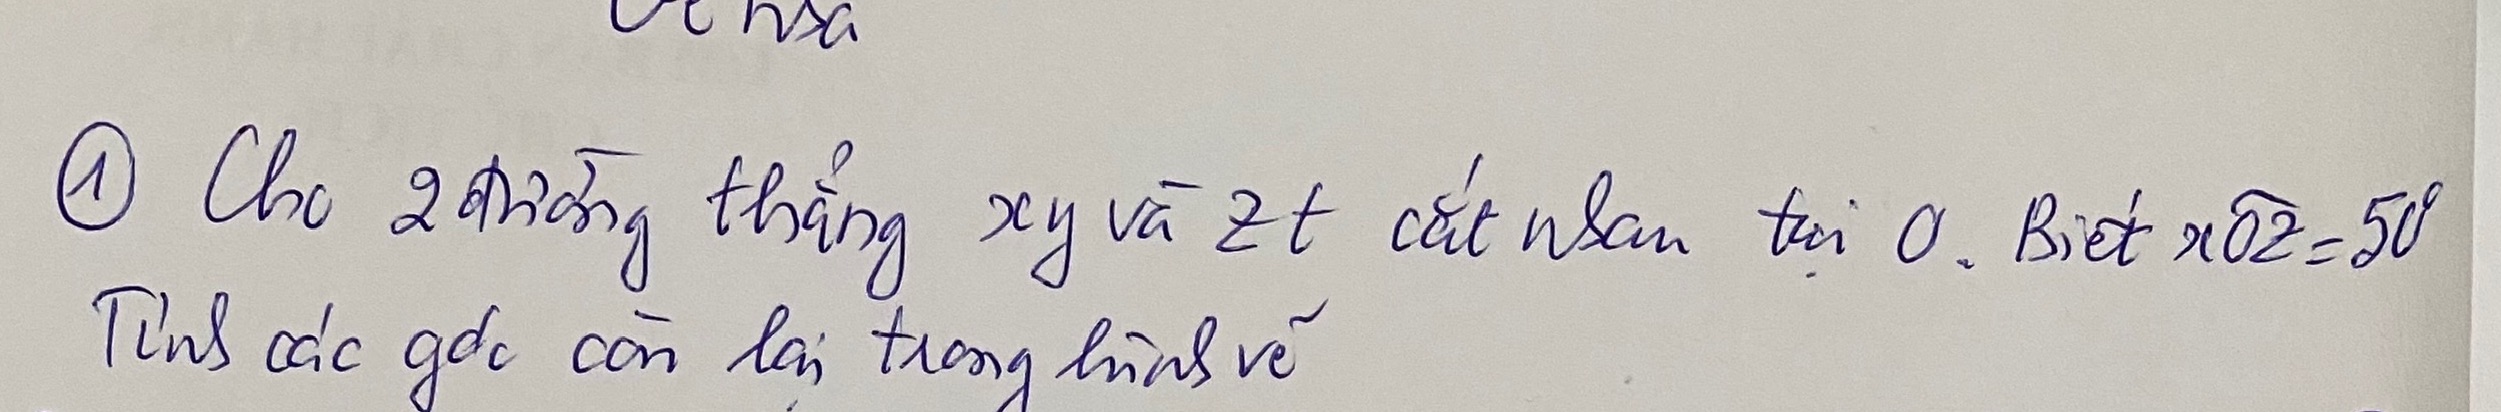 ① Cho 2 đường thẳng xy và zt cắt nhau tại O. Biết xÔz = 50°
Tính các góc còn lại trong hình vẽ